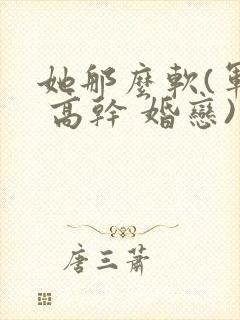 她那麼軟(軍
高幹 婚戀)
唐三蕭